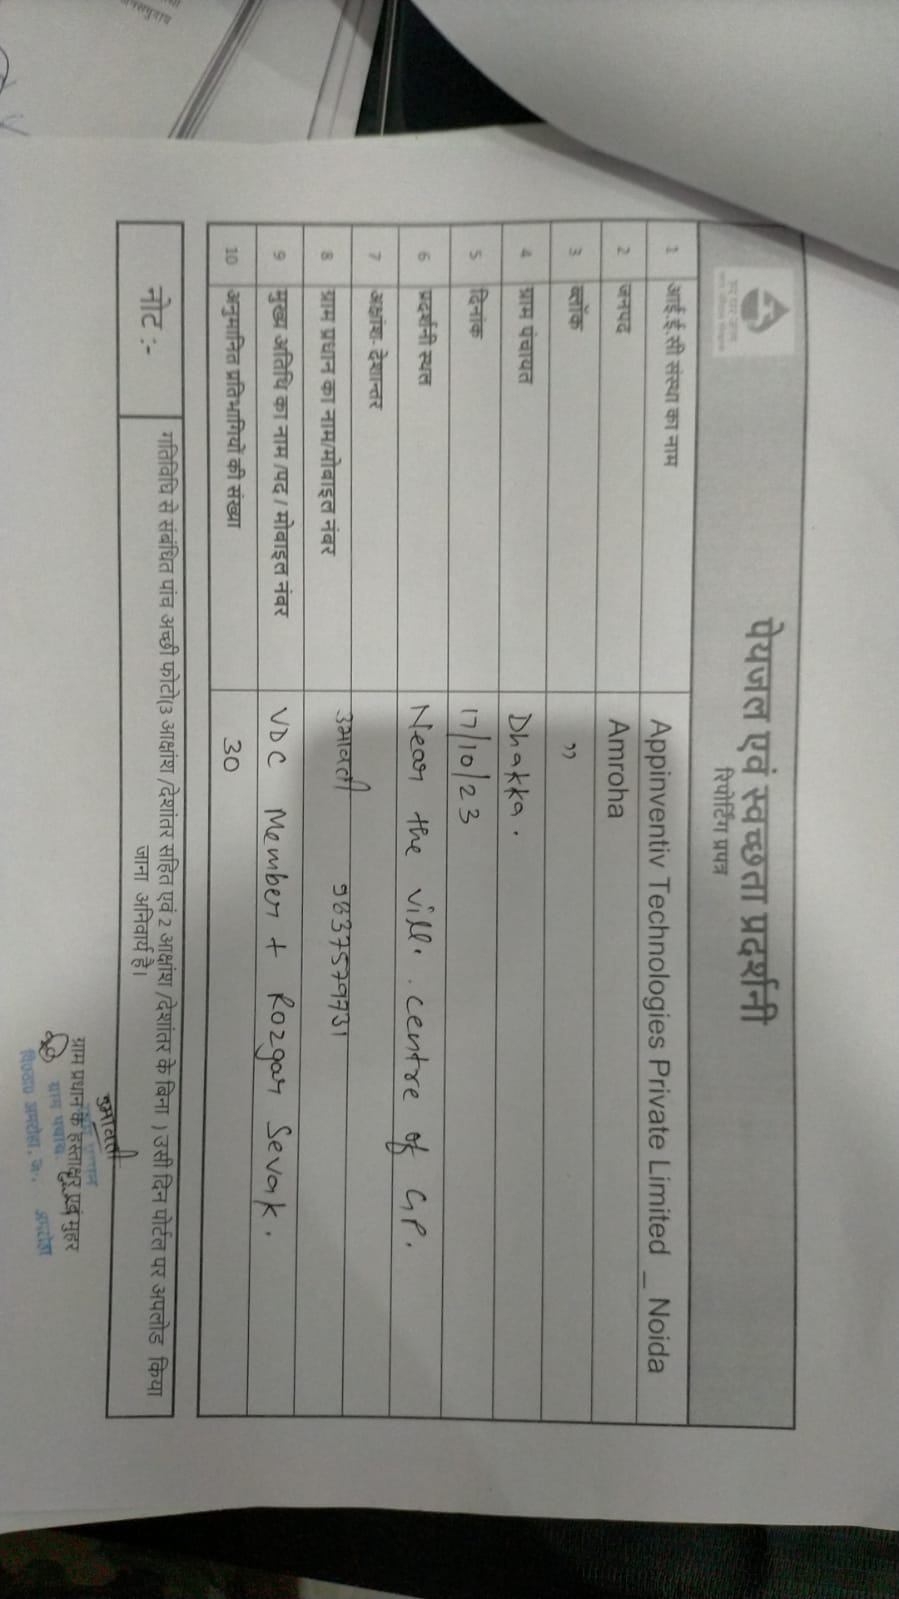 पेयजल एवं स्वच्छता प्रदर्शनी
रिपोर्टिंग प्रपत्र
1 आई.ई.सी संस्था का नाम Appinventiv Technologies Private Limited _ Noida
2 जनपद Amroha
3 ब्लॉक ,,
4 ग्राम पंचायत Dhakka.
5 दिनांक 17/10/23
6 प्रदर्शनी स्थल Near the vill. centre of GP.
7 अक्षांश- देशान्तर
8 ग्राम प्रधान का नाम/मोबाइल नंबर उमावती
9 मुख्य अतिथि का नाम /पद / मोबाइल नंबर VDC Member + Rozgar Sevak.
10 अनुमानित प्रतिभागियों की संख्या 30
नोट :- गतिविधि से संबंधित पांच अच्छी फोटो(3 आक्षांश /देशांतर सहित एवं 2 आक्षांश /देशांतर के बिना ) उसी दिन पोर्टल पर अपलोड किया
जाना अनिवार्य है।
उमावती
ग्राम प्रधान के हस्ताक्षर एवं मुहर